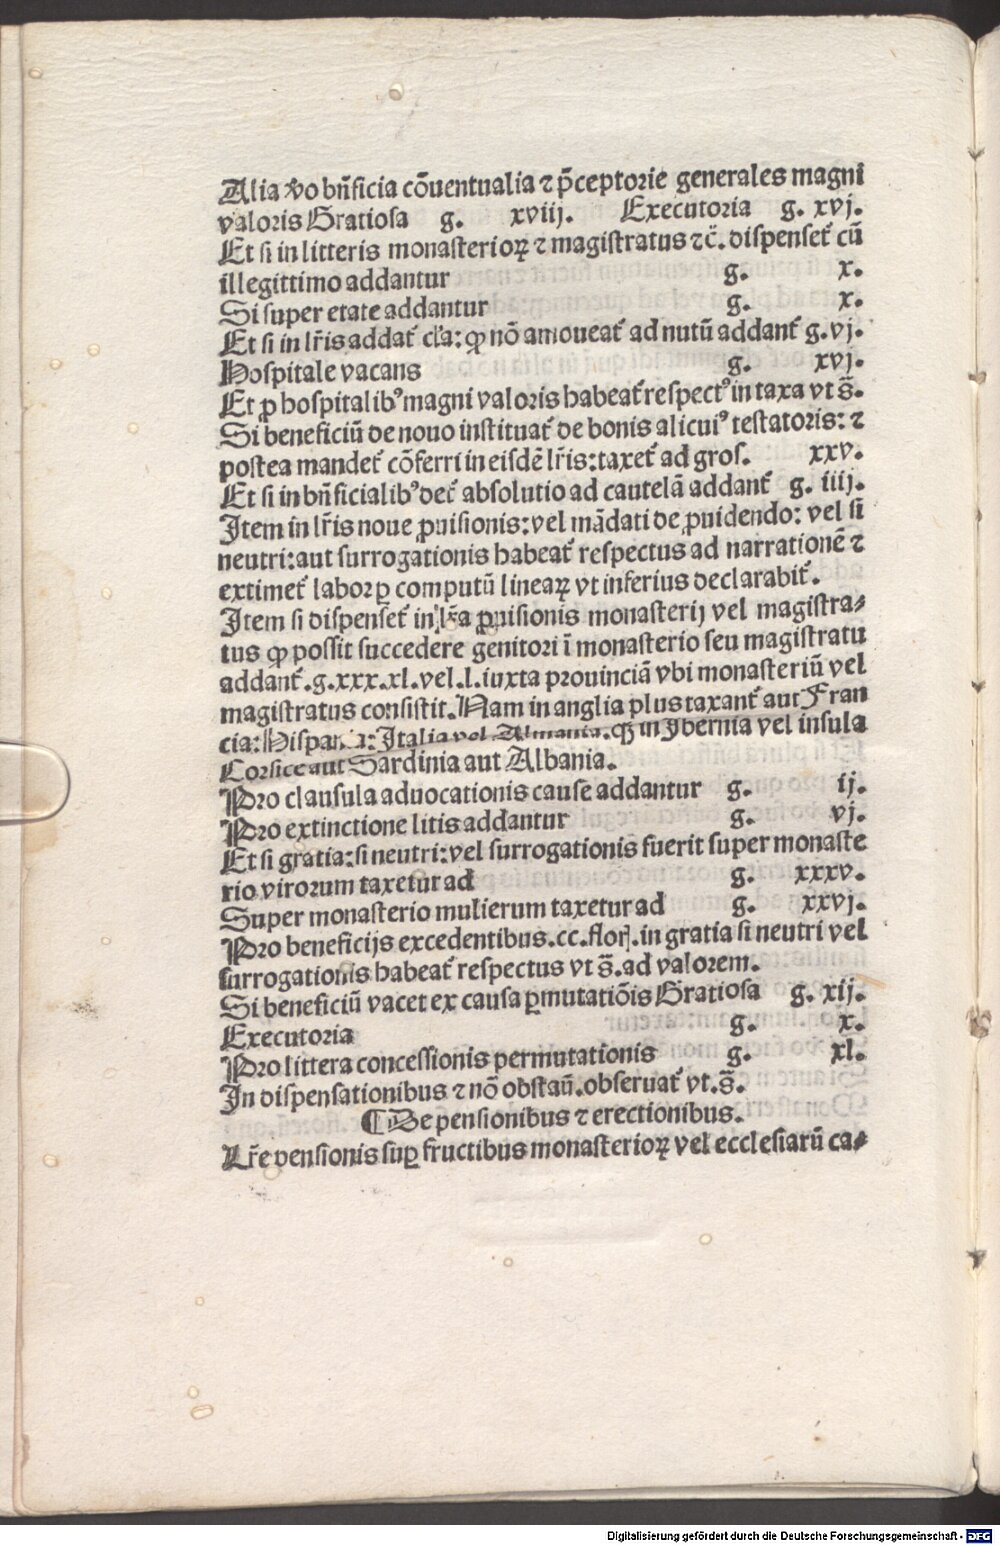 Alia v̄o bn̄ficia cōuentualia ⁊ p̄ceptorie generales magni
valoris Gratiosa g. xviij. Executoria g. xvj.
Et si in litteris monasterioꝝ ⁊ magistratus ⁊c̄. dispenset᷑ cū
illegittimo addantur g. x.
Si super etate addantur g. x.
Et si in lr̄is addat᷑ cl̄a: ꝙ nō amoueat᷑ ad nutū addant᷑ g. vj.
Hospitale vacans g. xvj.
Et ꝓ hospitalibꝰ magni valoris habeat᷑ respectꝰ in taxa vt s̄.
Si beneficiū de nouo instituat᷑ de bonis alicuiꝰ testatoris: ⁊
postea mandet᷑ cōferri in eisdē lr̄is: taxet᷑ ad gros. xxv.
Et si in bn̄ficialibꝰ det᷑ absolutio ad cautelā addant᷑ g. iiij.
Item in lr̄is noue ꝓuisionis: vel mādati de ꝓuidendo: vel si
neutri: aut surrogationis habeat᷑ respectus ad narrationē ⁊
extimet᷑ labor ꝑ computū lineaꝝ vt inferius declarabit᷑.
Item si dispenset᷑ in lr̄a ꝓuisionis monasterij vel magistra⸗
tus ꝙ possit succedere genitori ī monasterio seu magistratu
addant᷑. g. xxx. xl. vel. l. iuxta prouinciā vbi monasteriū vel
magistratus consistit. Nam in anglia plus taxant᷑ aut Fran
cia: Hispania: Italia vel Almania. ꝙ̄ in Ybernia vel insula
Corsice aut Sardinia aut Albania.
Pro clausula aduocationis cause addantur g. ij.
Pro extinctione litis addantur g. vj.
Et si gratia: si neutri: vel surrogationis fuerit super monaste
rio virorum taxetur ad g. xxxv.
Super monasterio mulierum taxetur ad g. xxvj.
Pro beneficijs excedentibus. cc. floꝝ. in gratia si neutri vel
surrogationis habeat᷑ respectus vt s̄. ad valorem.
Si beneficiū vacet ex causa ꝑmutatiōis Gratiosa g. xij.
Executoria g. x.
Pro littera concessionis permutationis g. xl.
In dispensationibus ⁊ nō obstan̄. obseruat᷑ vt. s̄.
¶ De pensionibus ⁊ erectionibus.
Lr̄e pensionis suꝑ fructibus monasterioꝝ vel ecclesiarū ca⸗
Digitalisierung gefördert durch die Deutsche Forschungsgemeinschaft - DFG